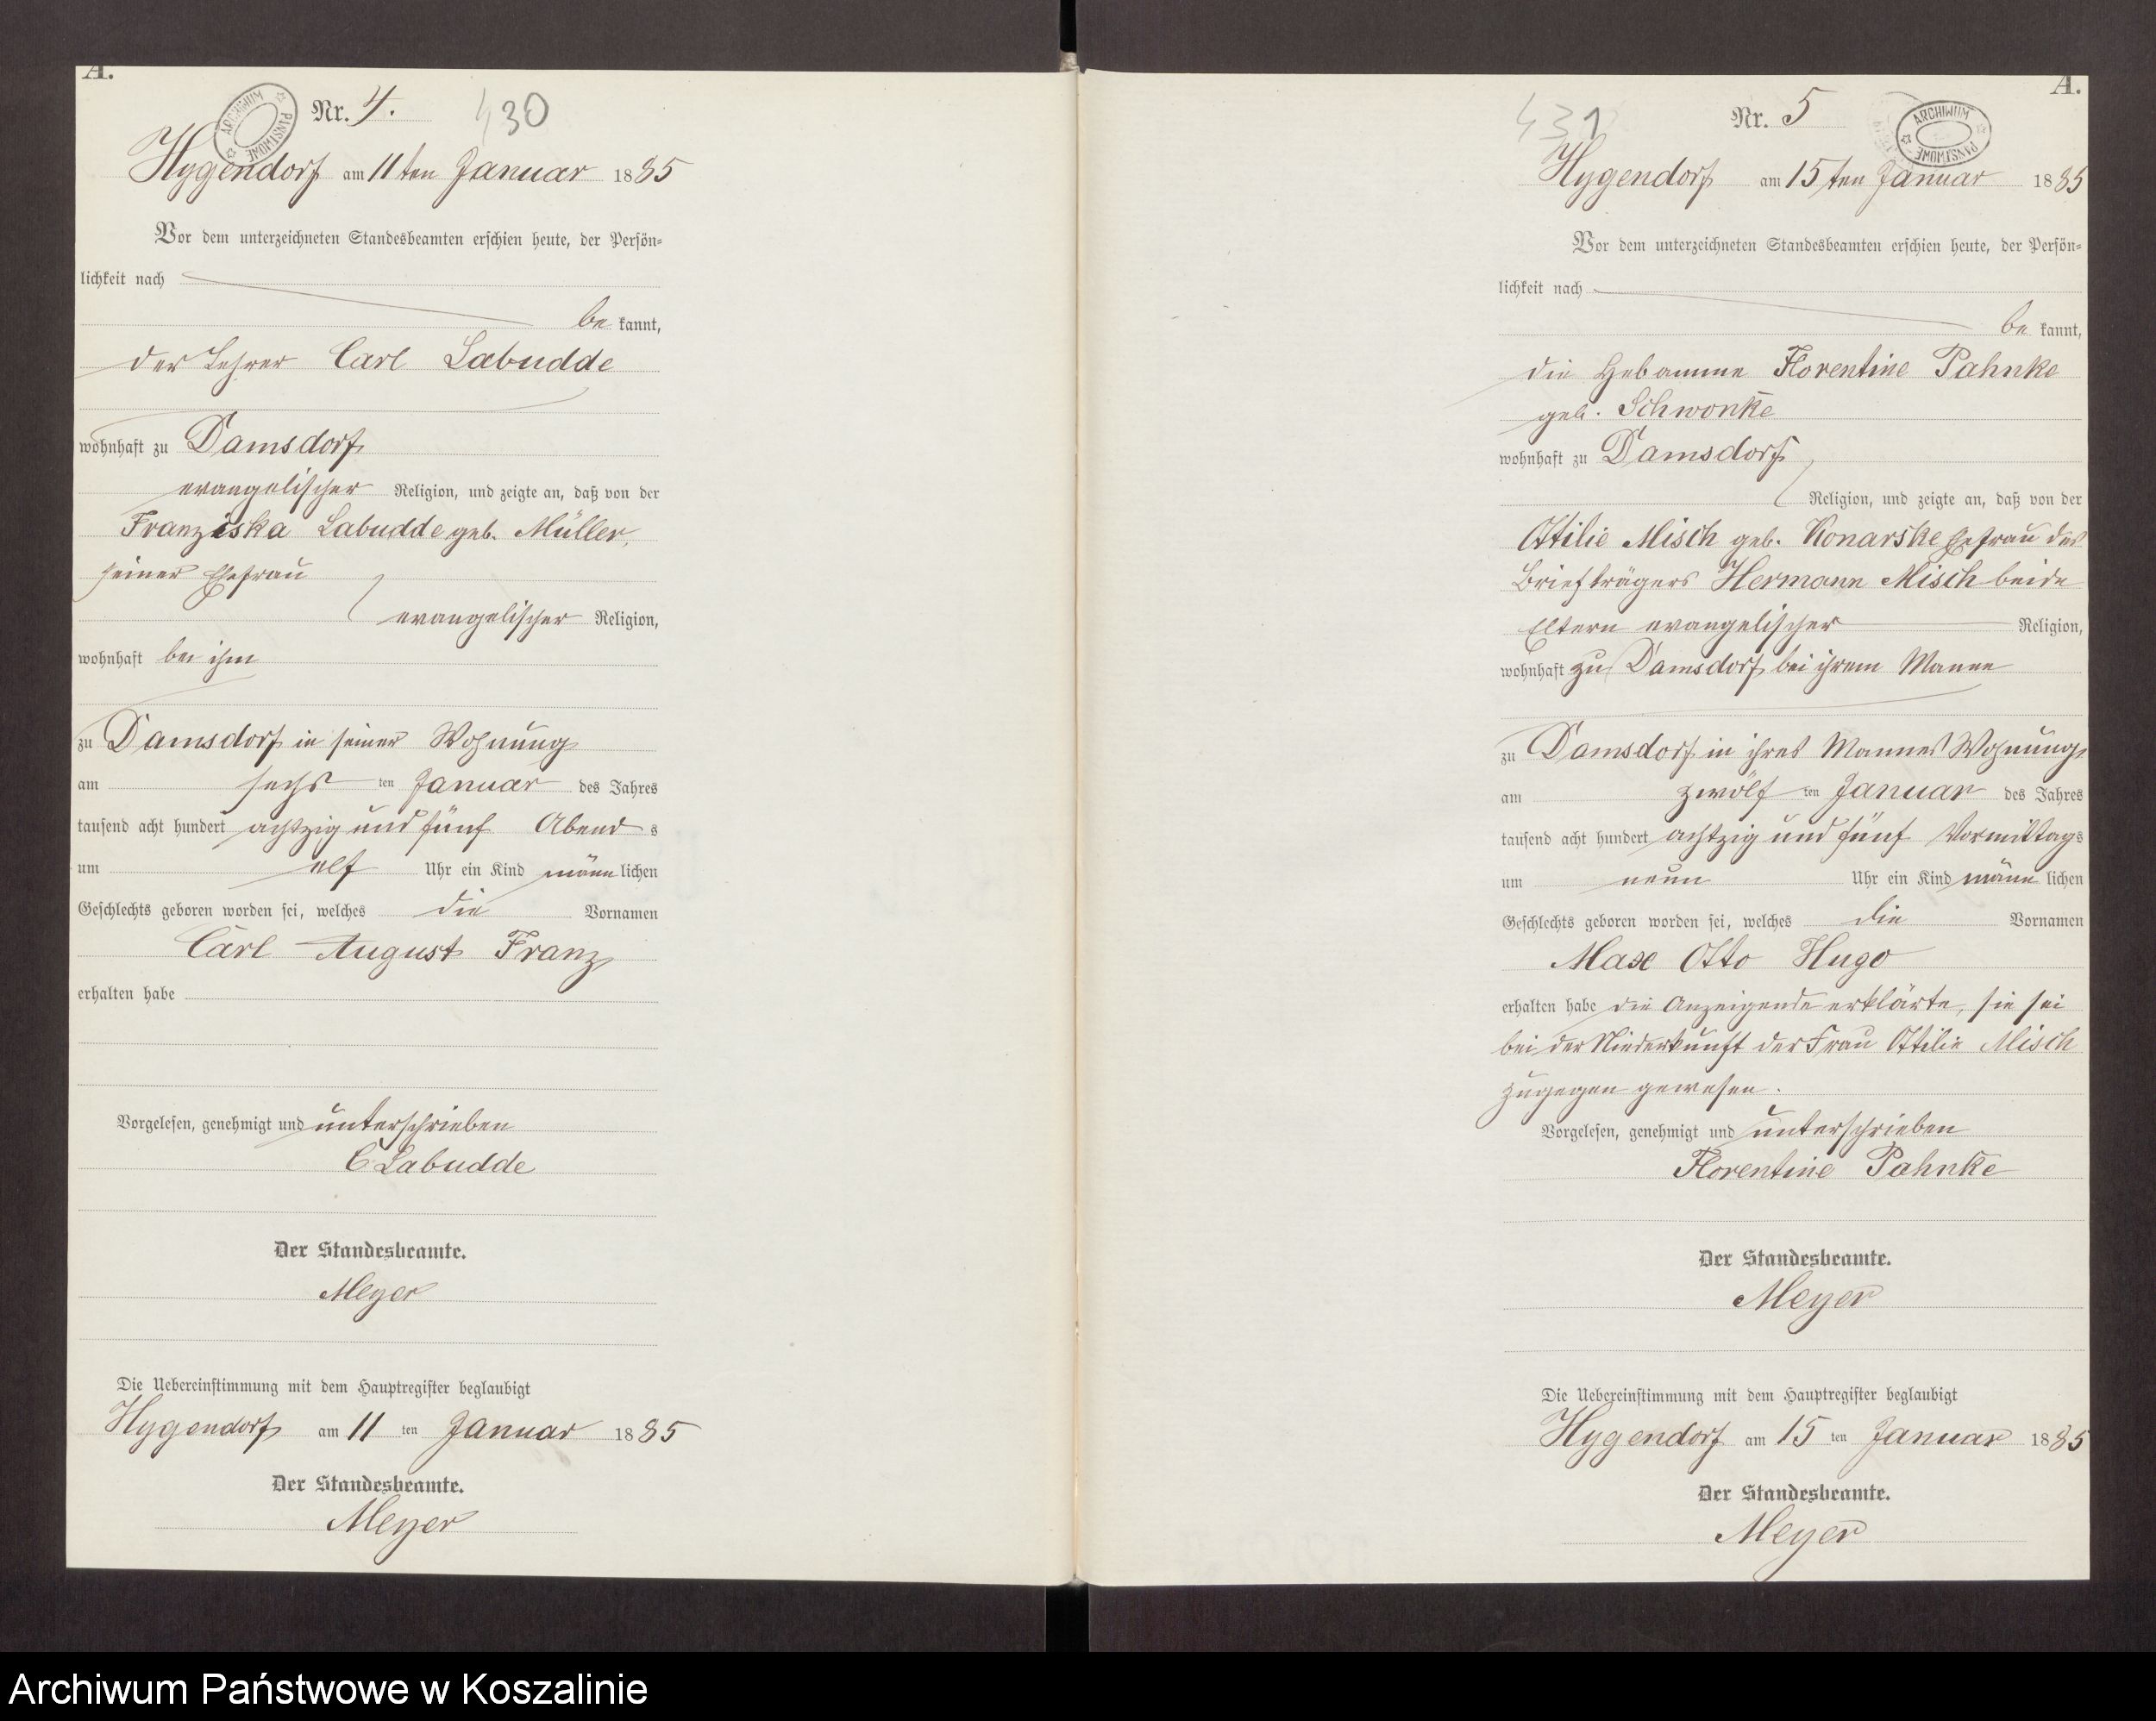 A.
ARCHIWUM PAŃSTWOWE
Nr. 4.
430
Hygendorf am 11ten Januar 1885
Vor dem unterzeichneten Standesbeamten erschien heute, der Persön-
lichkeit nach
be kannt,
der Lehrer Carl Labudde
wohnhaft zu Damsdorf
evangelischer Religion, und zeigte an, daß von der
Franziska Labudde geb. Müller,
seiner Ehefrau
evangelischer Religion,
wohnhaft bei ihm
zu Damsdorf in seiner Wohnung
am sechs ten Januar des Jahres
tausend acht hundert achtzig und fünf Abend s
um elf Uhr ein Kind männ lichen
Geschlechts geboren worden sei, welches die Vornamen
Carl August Franz
erhalten habe
Vorgelesen, genehmigt und unterschrieben
C Labudde
Der Standesbeamte.
Meyer
Die Uebereinstimmung mit dem Hauptregister beglaubigt
Hygendorf am 11 ten Januar 1885
Der Standesbeamte.
Meyer
A.
431
Nr. 5
ARCHIWUM PAŃSTWOWE
Hygendorf am 15ten Januar 1885
Vor dem unterzeichneten Standesbeamten erschien heute, der Persön-
lichkeit nach
be kannt,
die Hebamme Florentine Pahnke
geb. Schwonke
wohnhaft zu Damsdorf
Religion, und zeigte an, daß von der
Ottilie Misch geb. Konarske Ehefrau des
Briefträgers Hermann Misch beide
Eltern evangelischer Religion,
wohnhaft zu Damsdorf bei ihrem Manne
zu Damsdorf in ihres Mannes Wohnung
am zwölf ten Januar des Jahres
tausend acht hundert achtzig und fünf Vormittags
um neun Uhr ein Kind männ lichen
Geschlechts geboren worden sei, welches die Vornamen
Max Otto Hugo
erhalten habe die Anzeigende erklärte, sie sei
bei der Niederkunft der Frau Ottilie Misch
zugegen gewesen.
Vorgelesen, genehmigt und unterschrieben
Florentine Pahnke
Der Standesbeamte.
Meyer
Die Uebereinstimmung mit dem Hauptregister beglaubigt
Hygendorf am 15 ten Januar 1885
Der Standesbeamte.
Meyer
Archiwum Państwowe w Koszalinie